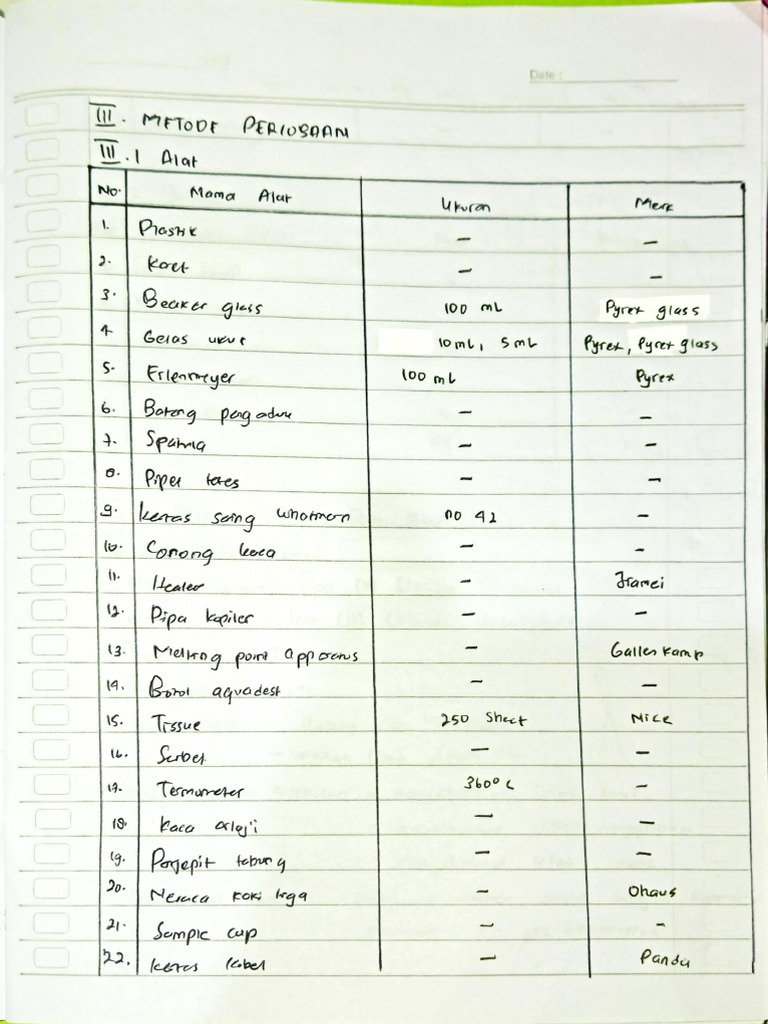 Date :
III. METODE PERCOBAAN
III.1 Alat
No. Nama Alat Ukuran Merk
1. Plastik – –
2. Karet – –
3. Beaker glass 100 mL Pyrex glass
4. Gelas ukur 10 mL, 5 mL Pyrex, Pyrex glass
5. Erlenmeyer 100 mL Pyrex
6. Batang pengaduk – –
7. Spatula – –
8. Pipet tetes – –
9. Kertas saring whatman no 42 –
10. Corong kaca – –
11. Heater – Jramei
12. Pipa kapiler – –
13. Melting point apparatus – Gallenkamp
14. Botol aquadest – –
15. Tissue 250 Sheet Nice
16. Serbet – –
17. Termometer 360°C –
18. Kaca arloji – –
19. Penjepit tabung – –
20. Neraca kaki tiga – Ohaus
21. Sample cup – –
22. Kertas label – Panda